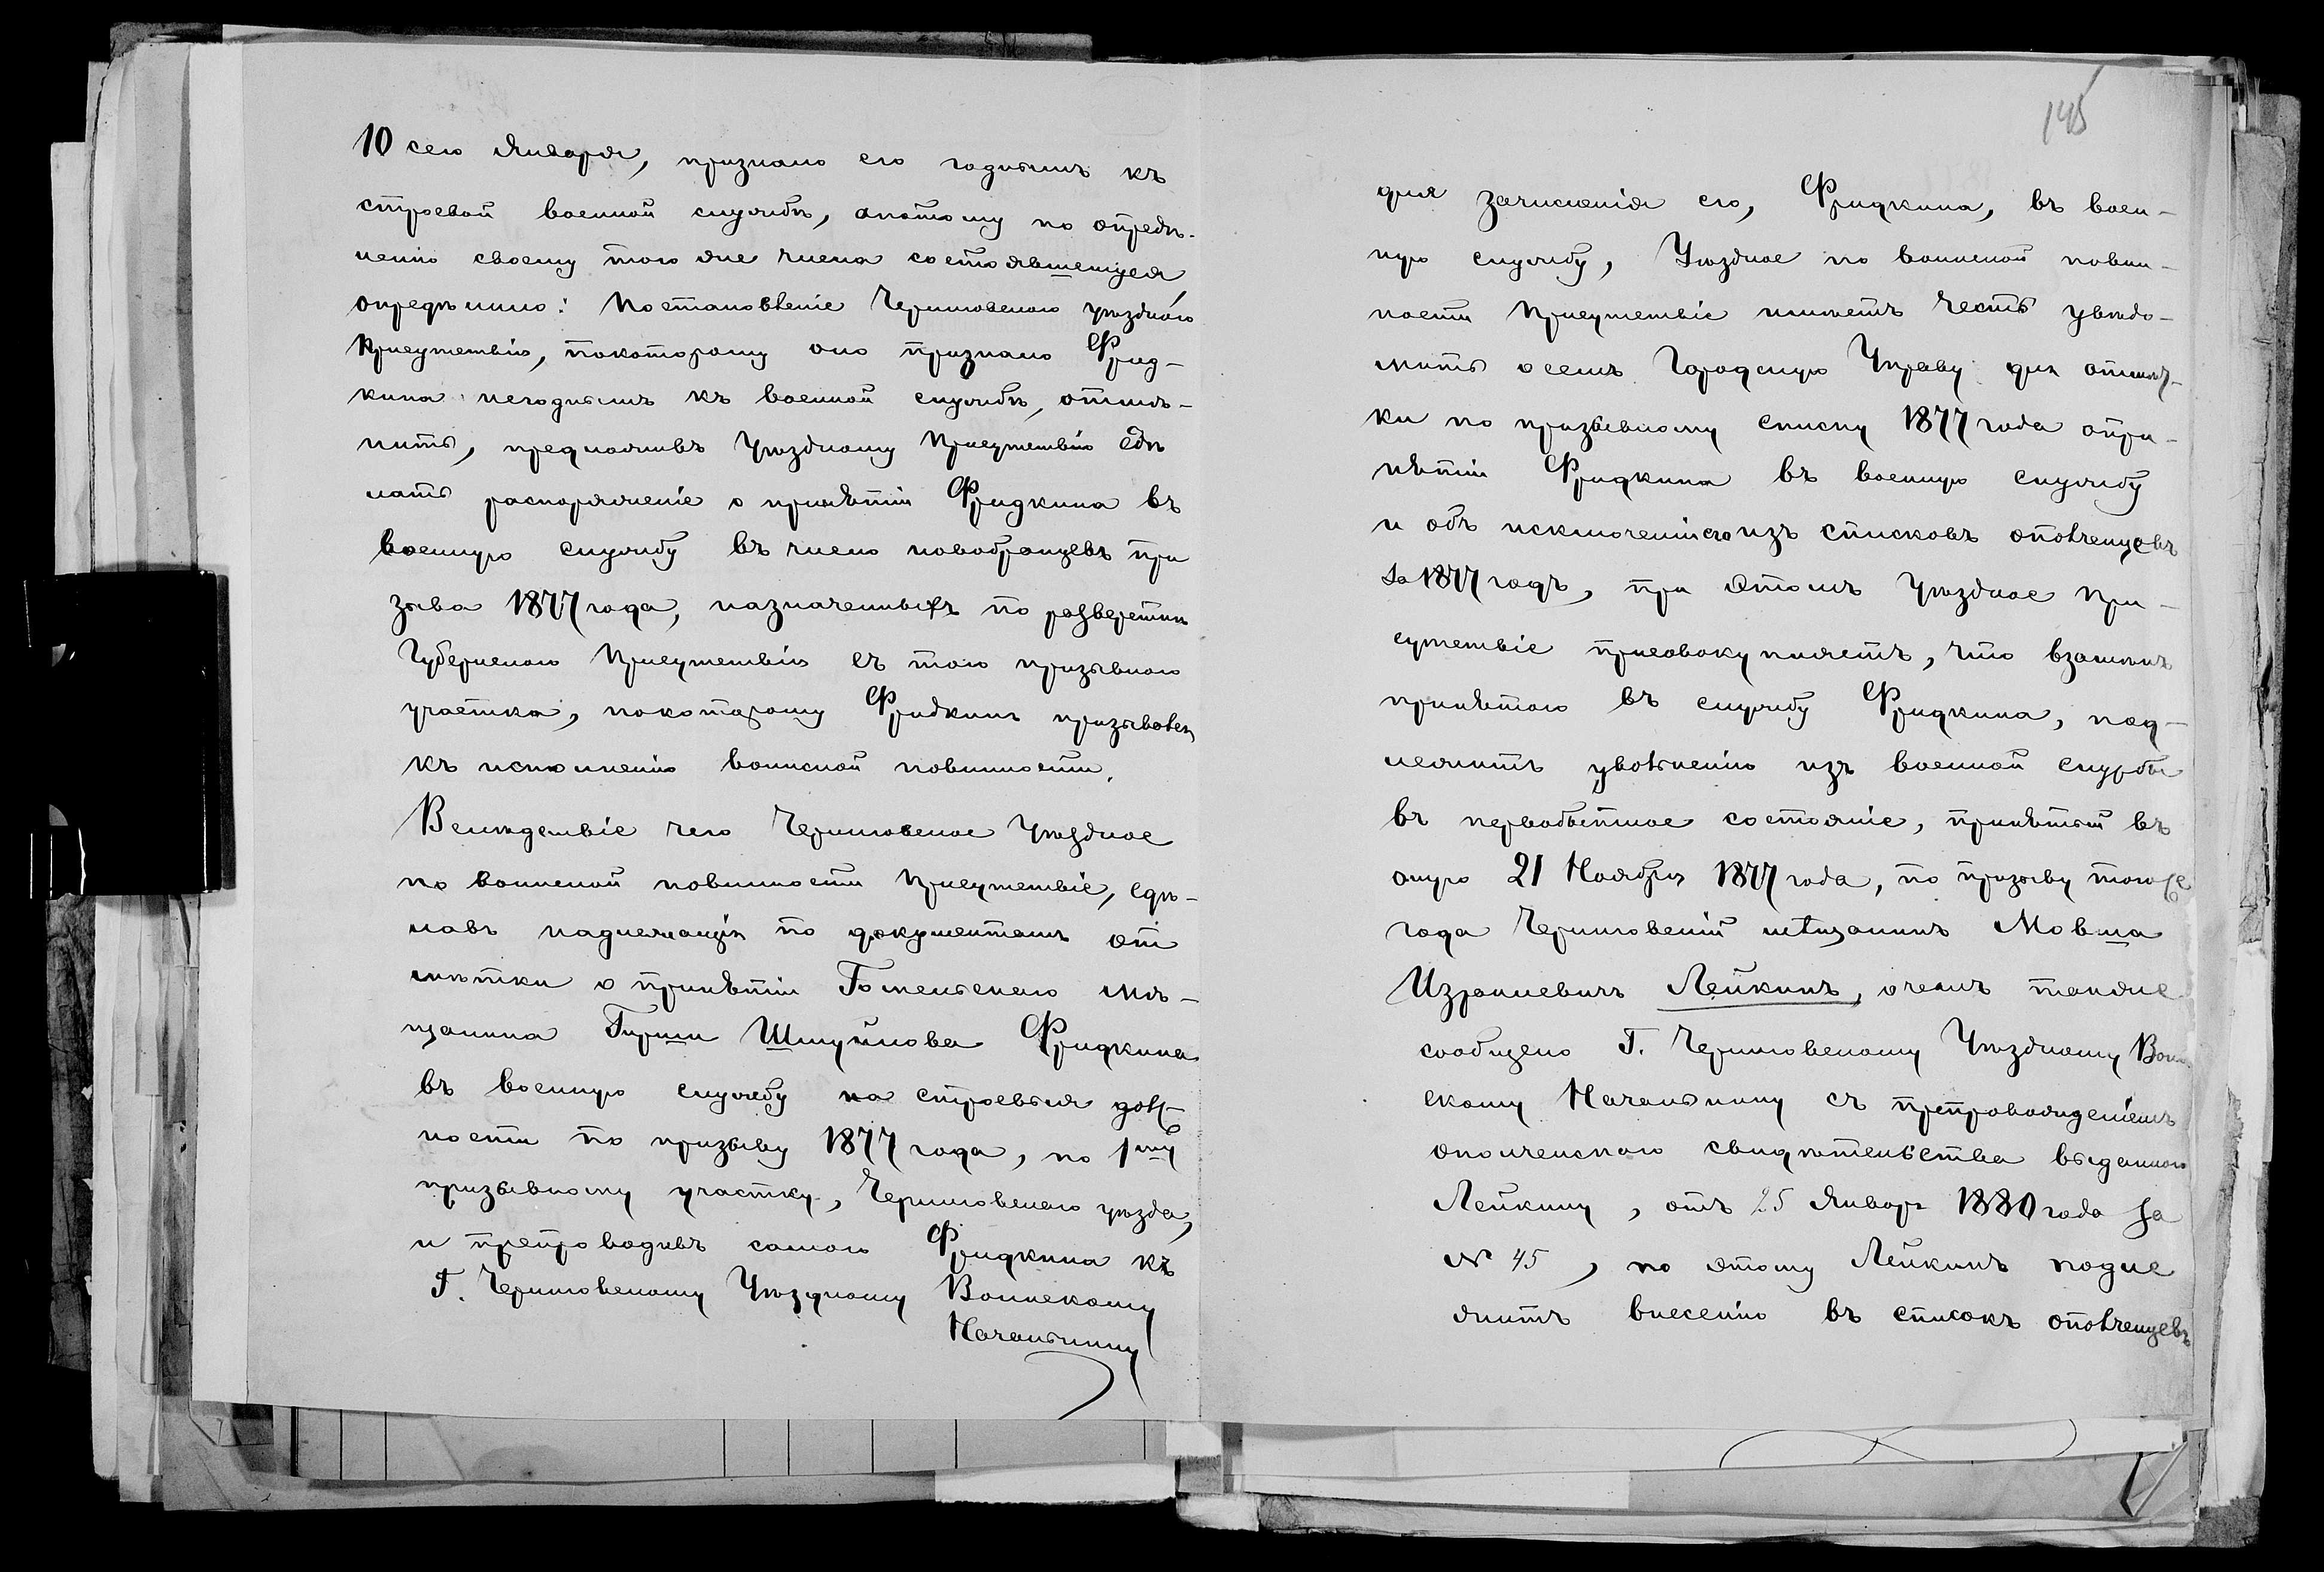 10 сего Января, признало его годнымъ къ
строевой военной службѣ, апотому по опредѣ-
ленію своему того же числа состоявшемуся,
опредѣлило: Постановленіе Черниговскаго уѣзднаго
Присутствія, покоторому оно признало Фрид-
кина негоднымъ къ военной службѣ, отмѣ-
нить, предложивъ Уѣздному Присутствію сдѣ
лать распоряженіе о принятіи Фридкина въ
военную службу въ число новобранцевъ при
зыва 1877 года, назначенныхъ по разверстки
Губернскаго Присутствія съ того призывнаго
участка, покоторому Фридкинъ призывался
къ исполненію воинской повинности.
Вслѣдствіе чего Черниговское Уѣздное
по воинской повинности Присутствіе, сдѣ-
лавъ надлежащія по документамъ от
мѣтки о принятіи Гомельскаго мѣ-
щанина Гирши Шмуйлова Фридкина
въ военную службу на строевыя долж
ности по призыву 1877 года, по 1му
призывному участку, Черниговскаго уѣзда,
и препроводивъ самого Фридкина къ
Г. Черниговскому Уѣздному Воинскому
Начальнику
145
для зачисленія его, Фридкина, въ воен-
ную службу, Уѣздное по воинской повин-
ности Присутствіе имѣетъ честь увѣдо-
мить осемъ Городскую Управу для отмѣт-
ки по призывному списку 1877 года опри-
нятіи Фридкина въ военную службу
и объ исключеніи его изъ списковъ ополченцевъ
за 1877 годъ, при этомъ Уѣздное При-
сутствіе присовокупляетъ, что взамѣнъ
принятого въ службу Фридкина, под-
лежитъ увольненію изъ военной службы
въ первобытное состояніе, принятый въ
оную 21 Ноября 1877 года, по призыву тогоже
года Черниговскій мѣщанинъ Мовша
Израилевичъ Лейкинъ, очемъ также
сообщено Г. Черниговскому Уѣздному Воин
скому Начальнику съ препровожденіемъ
ополченскаго свидѣтельства выданнаго
Лейкину, отъ 25 Января 1880 года за
№ 45, по этому Лейкинъ подле
житъ внесенію въ списокъ ополченцевъ